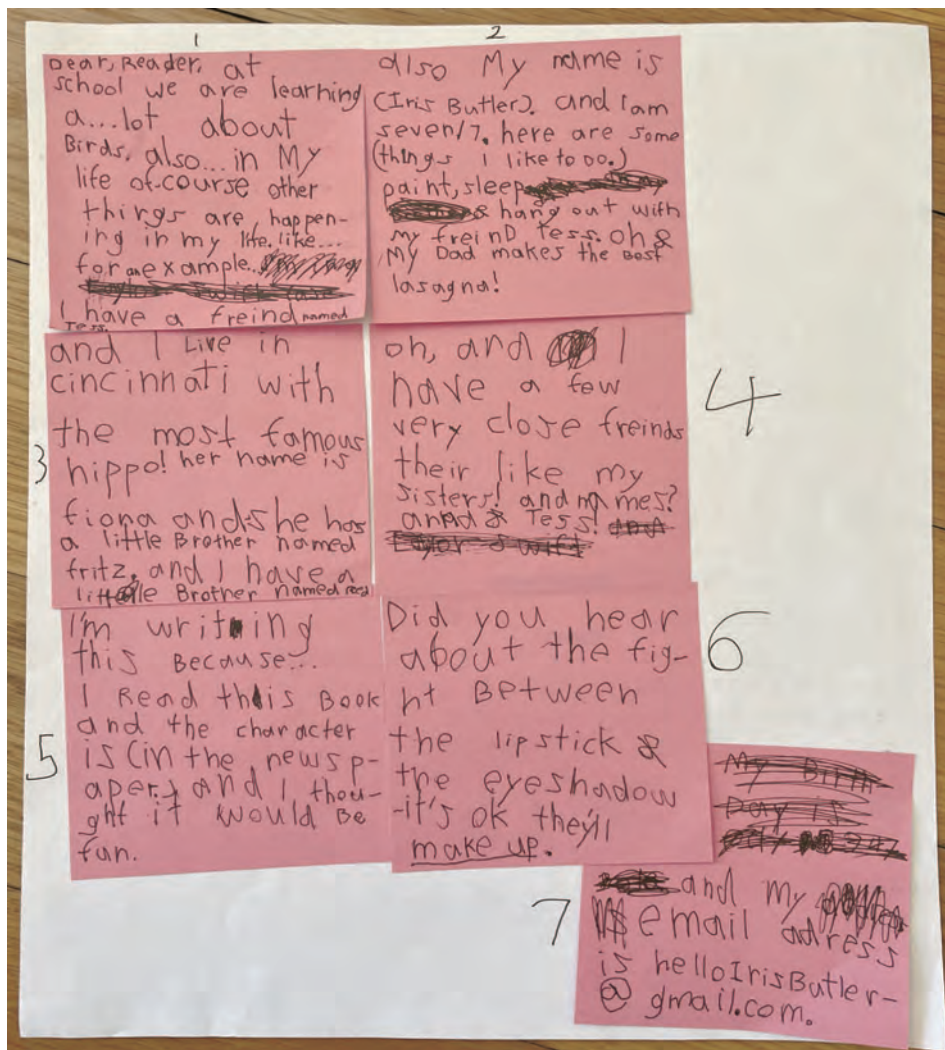 1
Dear, Reader, at
school we are learning
a...lot about
Birds, also... in My
life of-course other
things are, happen-
ing in my life. like...
for an example...
I have a freind named
Tess.
2
also My name is
(Iris Butler). and I am
seven/7. here are some
(things I like to do.)
paint, sleep
& hang out with
My freinD Tess. Oh &
My Dad makes the Best
lasagna!
3
and I Live in
cincinnati with
the most famous
hippo! her name is
fiona and she has
a little Brother named
fritz, and I have a
little Brother named
4
oh, and I
have a few
very close freinds
their like my
sisters! and names?
& Tess! and
Taylor Swift
5
I'm writing
this Because...
I Read this Book
and the character
is (in the newsp-
aper) and I thou-
ght it would Be
fun.
6
Did you hear
about the fig-
ht Between
the lipstick &
the eyeshadow
-it's ok they'll
make up.
7
My Birth
Day is
and My
email adress
is helloIrisButler-
@ gmail.com.